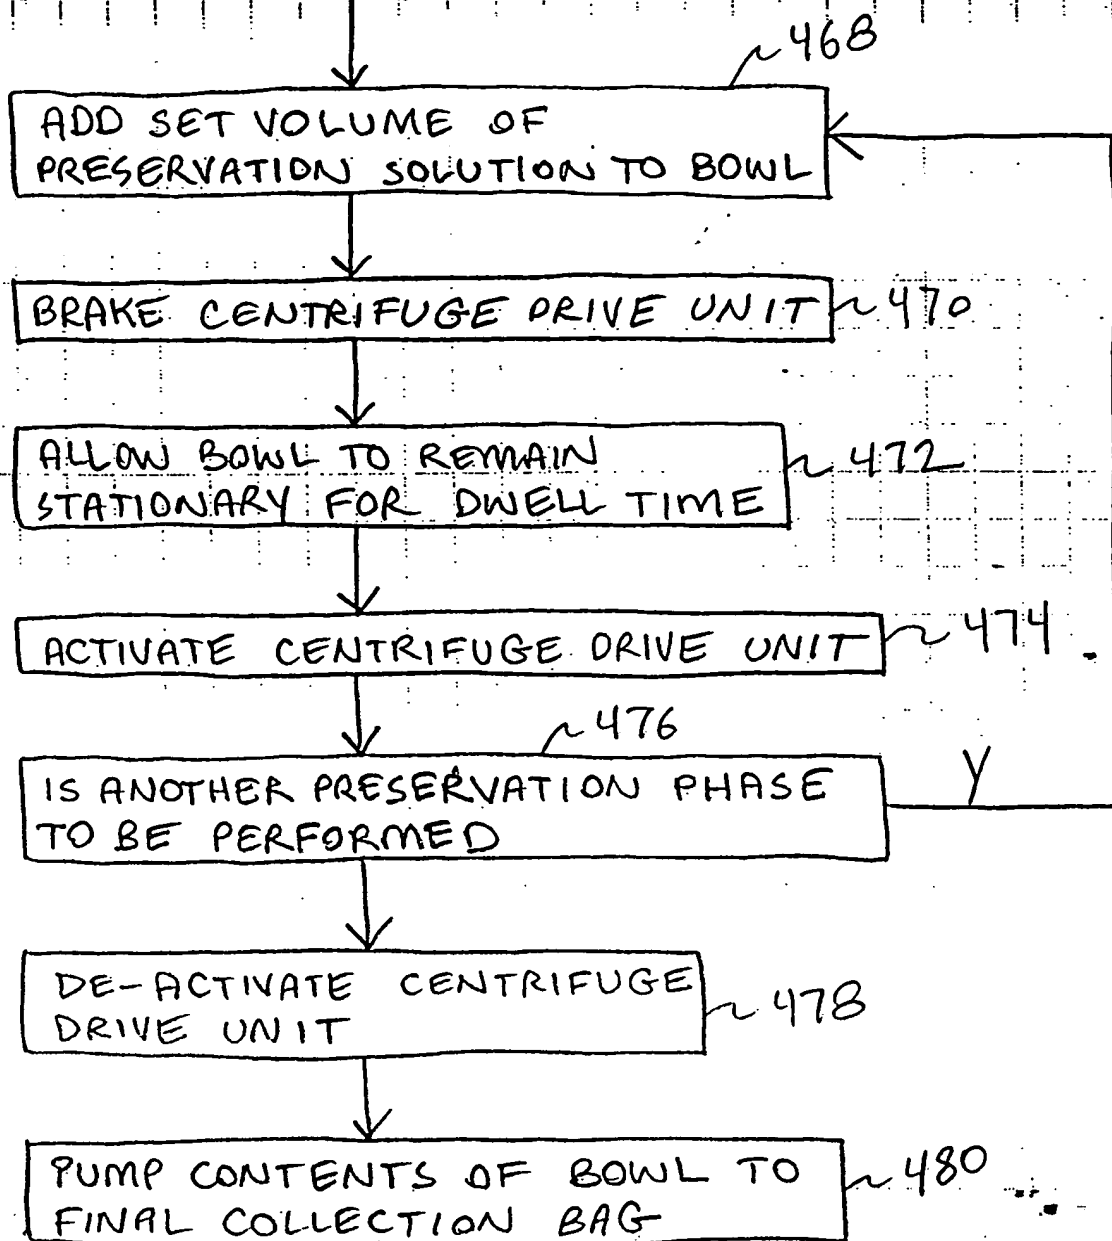 468
ADD SET VOLUME OF
PRESERVATION SOLUTION TO BOWL
BRAKE CENTRIFUGE DRIVE UNIT 470
ALLOW BOWL TO REMAIN
STATIONARY FOR DWELL TIME
472
ACTIVATE CENTRIFUGE DRIVE UNIT 474
476
IS ANOTHER PRESERVATION PHASE
TO BE PERFORMED
Y
DE-ACTIVATE CENTRIFUGE
DRIVE UNIT
478
PUMP CONTENTS OF BOWL TO
FINAL COLLECTION BAG
480